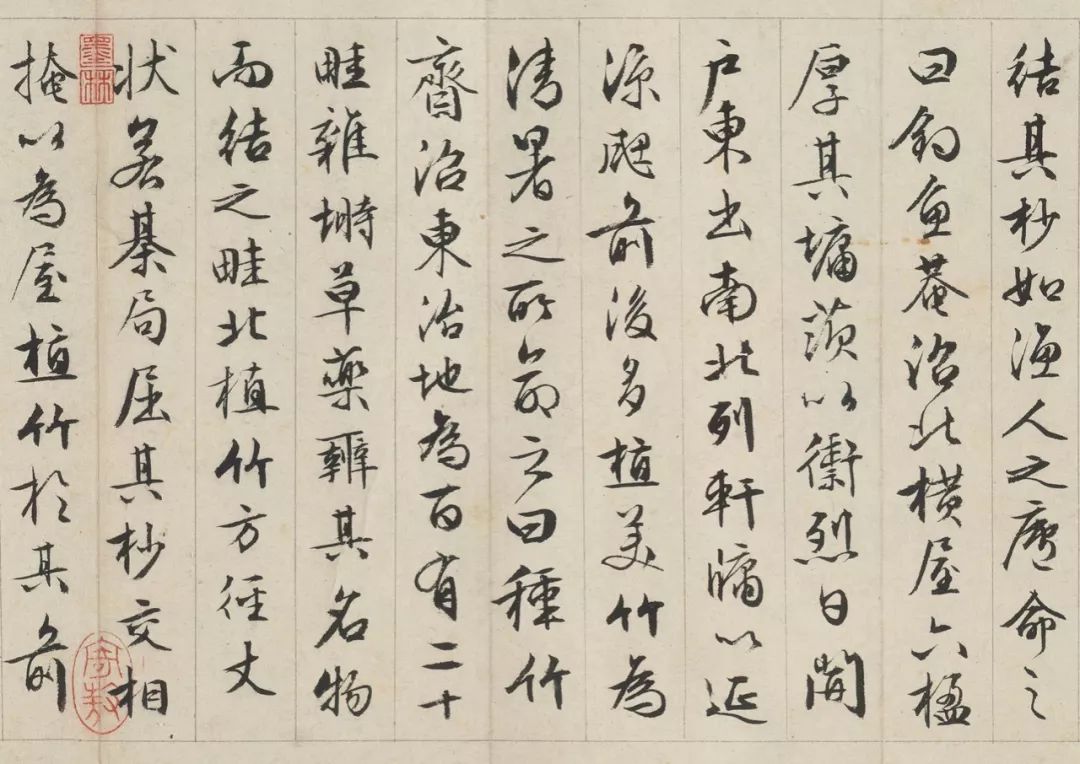 結其杪如漁人之廬命之
曰釣魚菴沼北横屋六楹
厚其墉茨以御烈日開
户東出南北列軒牖以延
涼颸前後多植美竹為
清暑之所命之曰種竹
齋沼東治地為百有二十
畦雜塒草藥辨其名物
而結之畦北植竹方徑丈
状若棊局屈其杪交相
掩以為屋植竹於其前
墨林